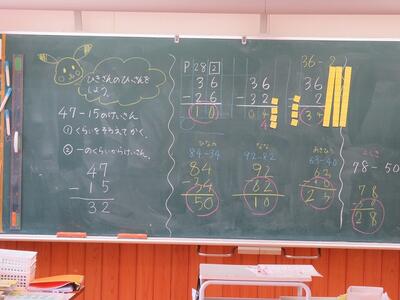 ひきざんのひっさんを
しよう。
47-15のけいさん
① くらいをそろえてかく。
② 一のくらいからけいさん。
47
-15
32
P28 2
36
-26
10
36
-32
04
4
36-2
36
-2
34
ひなの
84-34
84
-34
50
なな
92-82
92
-82
10
63-40
63
-40
23
78-50
78
-50
28